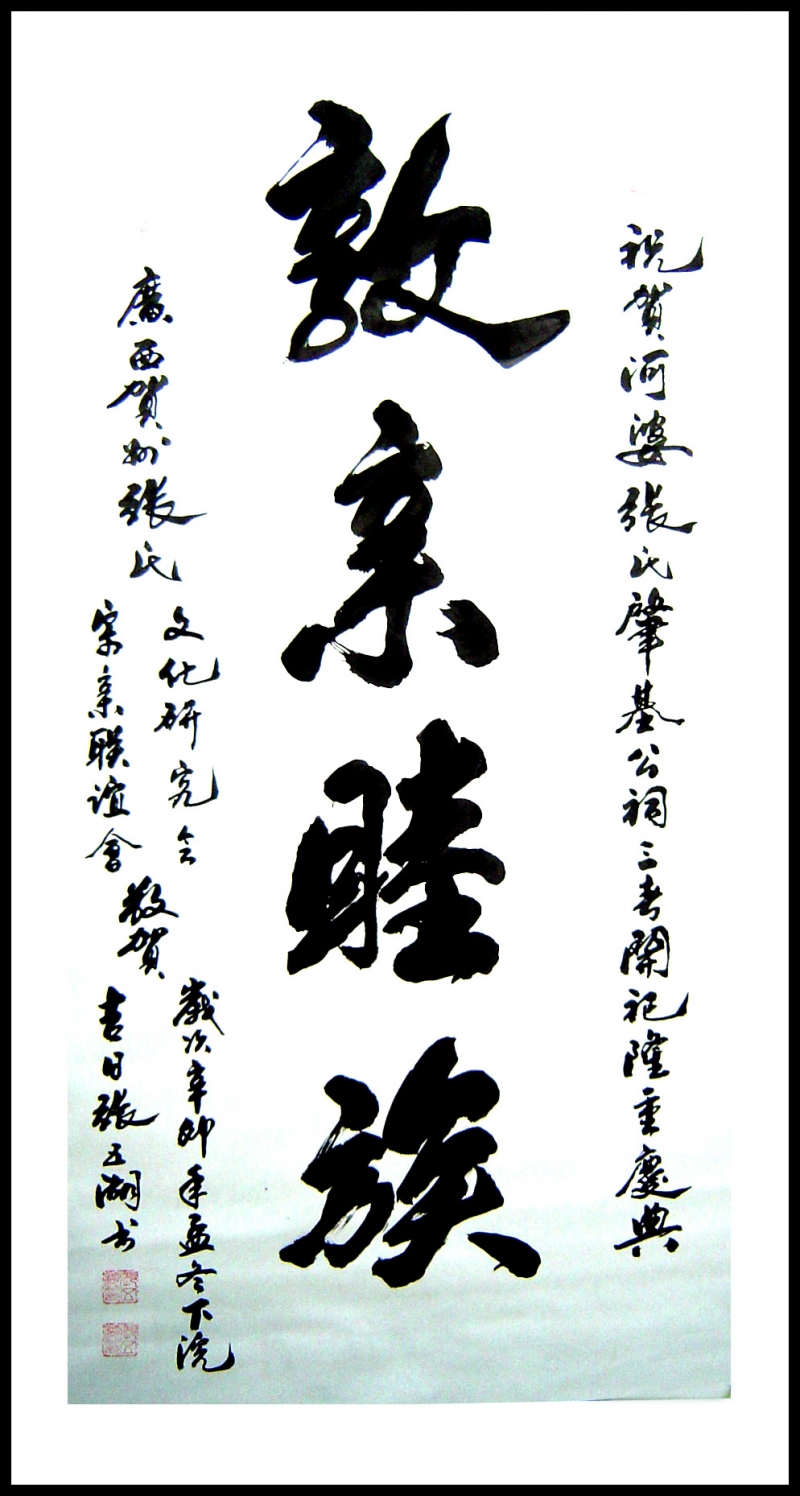 祝賀河婆張氏肇基公祠三考開祀隆重慶典
敦亲睦族
廣西賀州張氏
文化研究会
宗亲联誼會
敬賀
歲次辛卯年孟冬下浣
吉日張五湖书